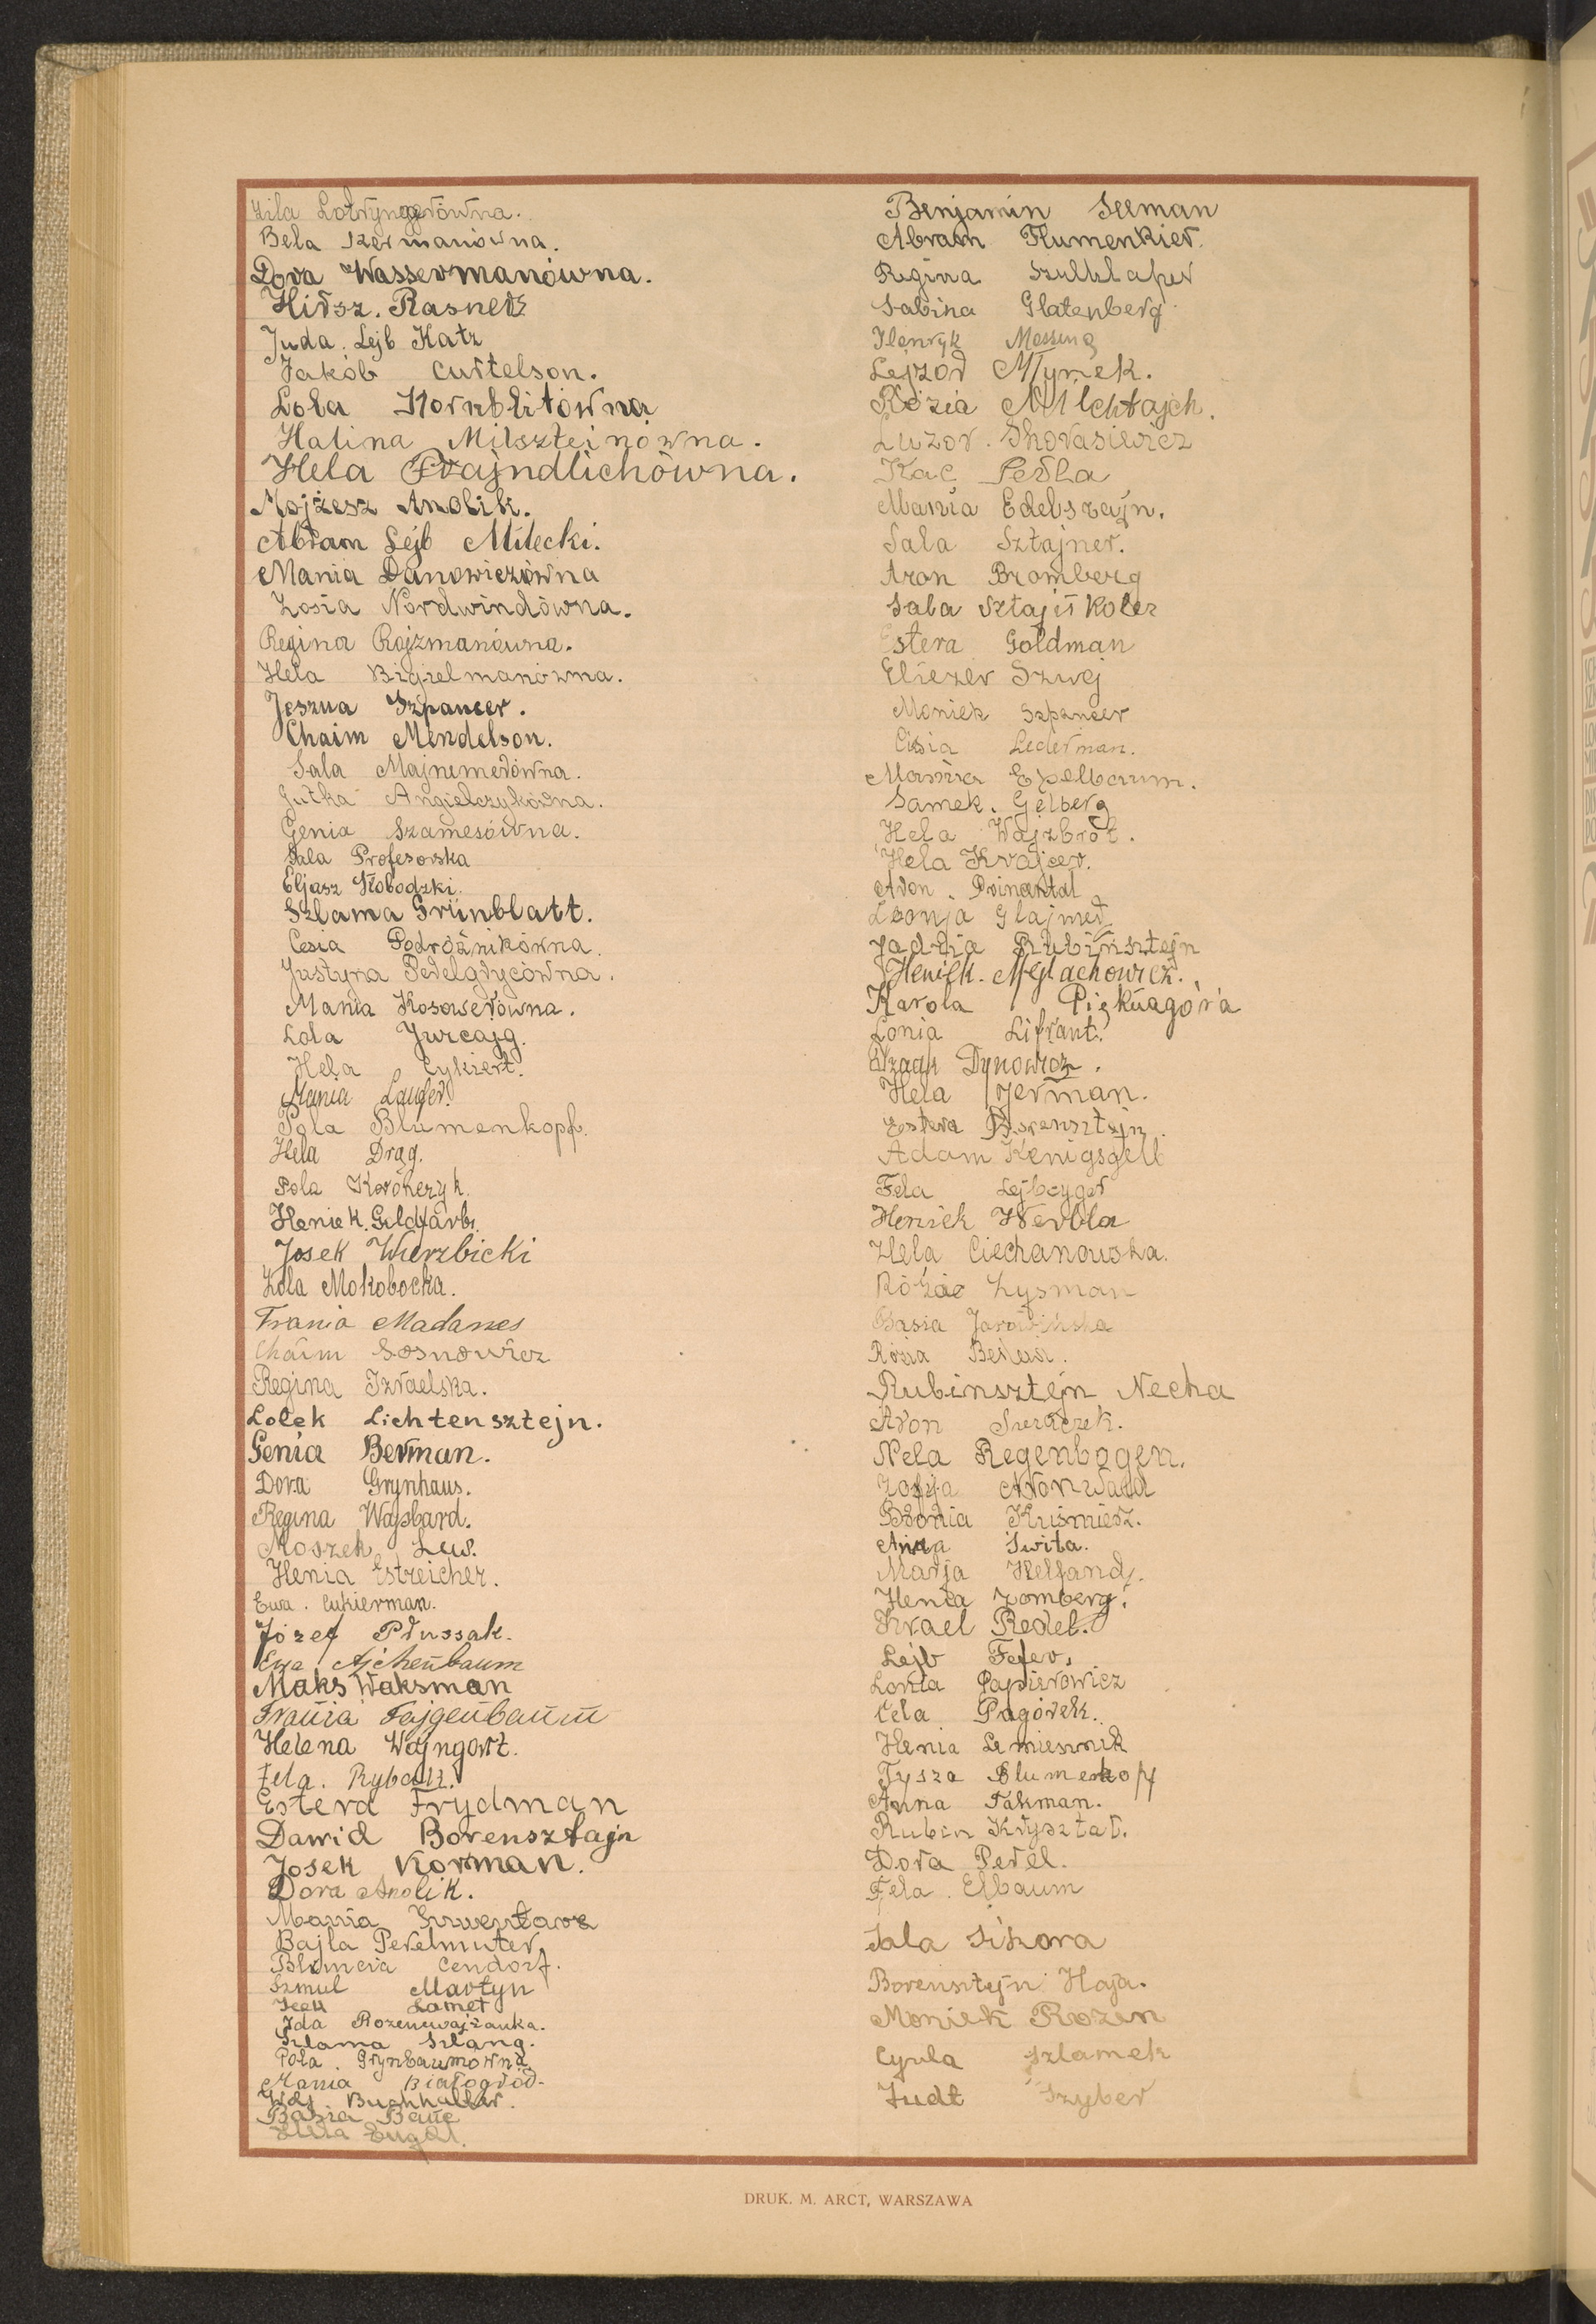 Bela Szermanówna.
Dora Wassermanówna.
Hirsz. Rasner
Juda. Lejb Katz
Jakób Curtelson.
Lola Kornblitówna
Halina Milsztejnówna.
Hela Frajndlichówna.
Mojżesz Anolik.
Abram Lejb Milecki.
Mania Danowiczówna
Zosia Nordwindówna.
Regina Rajzmanówna.
Hela Bigielmanówna.
Jeszua Szpancer.
Chaim Mendelson.
Sala Majnemerówna.
Gutka Angielczykówna.
Genia Szamesówna.
Sala Profesorska
Eljasz Słobodzki.
Szlama Grünblatt.
Cesia Podróżnikówna.
Justyna Perelgrycówna.
Mania Kosowerówna.
Lola Jurcajg.
Hela Cykiert.
Mania Laufer.
Pola Blumenkopf.
Hela Drąg.
Pola Korónczyk.
Heniek. Goldfarb.
Josek Wierzbicki
Zola Mokobocka.
Frania Madanes
Chaim Sosnowicz
Regina Izraelska.
Lolek Lichtensztejn.
Genia Berman.
Dora Grynhaus.
Regina Wajsbard.
Moszek Lew.
Henia Estreicher.
Ewa. Cukierman.
Józef Prussak.
Ewa Ajchenbaum
Maks Waksman
Frania Fajgenbaum
Helena Wajngort.
Fela. Rybak.
Estera Frydman
Dawid Borensztajn
Josek Korman.
Dora Anolik.
Mania
Bajla Perelmuter.
Blumcia Cendorf.
Szmul Martyn
Icek Lamet
Ida Rozencwajżanka.
Szlama Szlang.
Pola. Grynbaumówna
Mania Białogród.
Buchhalter.
Basia
Engel.
Benjamin Seeman
Abram Flumenkier.
Regina Szulklaper
Sabina Glatenberg
Henryk Messing
Lejzor Młynek.
Rózia Milchtajch.
Luzor. Skorasiewicz
Kac Perla
Mania Edelsztajn.
Sala Sztajner.
Aron Bromberg
Saba Sztajnkoler
Estera Goldman
Eliezer Szwej
Moniek Szpancer
Cisia Lederman.
Mania Epelbaum.
Samek. Gelberg
Hela Wajzbrot.
Hela Krajcer.
Aron. Prinental
Lonja Glajmer
Jadzia Rubinsztejn
Heniek. Meglachowicz.
Karola Pięknagóra
Lonia Lifrant.
Dynowicz.
Hela Jerman.
Estera Borensztejn.
Adam Kenigsgelb
Fela Lejbcyger
Heniek Werbla
Hela Ciechanowska.
Rózia Zysman
Basia
Rózia
Rubinsztejn Necha
Aron Szeraczek.
Nela Regenbogen.
Zofja Aronwald
Bronia Kuśmierz.
Anna Świta.
Marja Helfand.
Henia Zomberg.
Izrael Redel.
Lejb Fefer.
Lonia Papierowicz
Cela Pagórek.
Henia Lemiesznik
Tysza Blumenkopf
Anna Fakman.
Rubin Kryształ.
Dora Perel.
Fela. Elbaum
Sala Sikora
Borensztejn Haja.
Moniek Rozen
Cyrla Szlamek
Judt Szyber
DRUK. M. ARCT, WARSZAWA